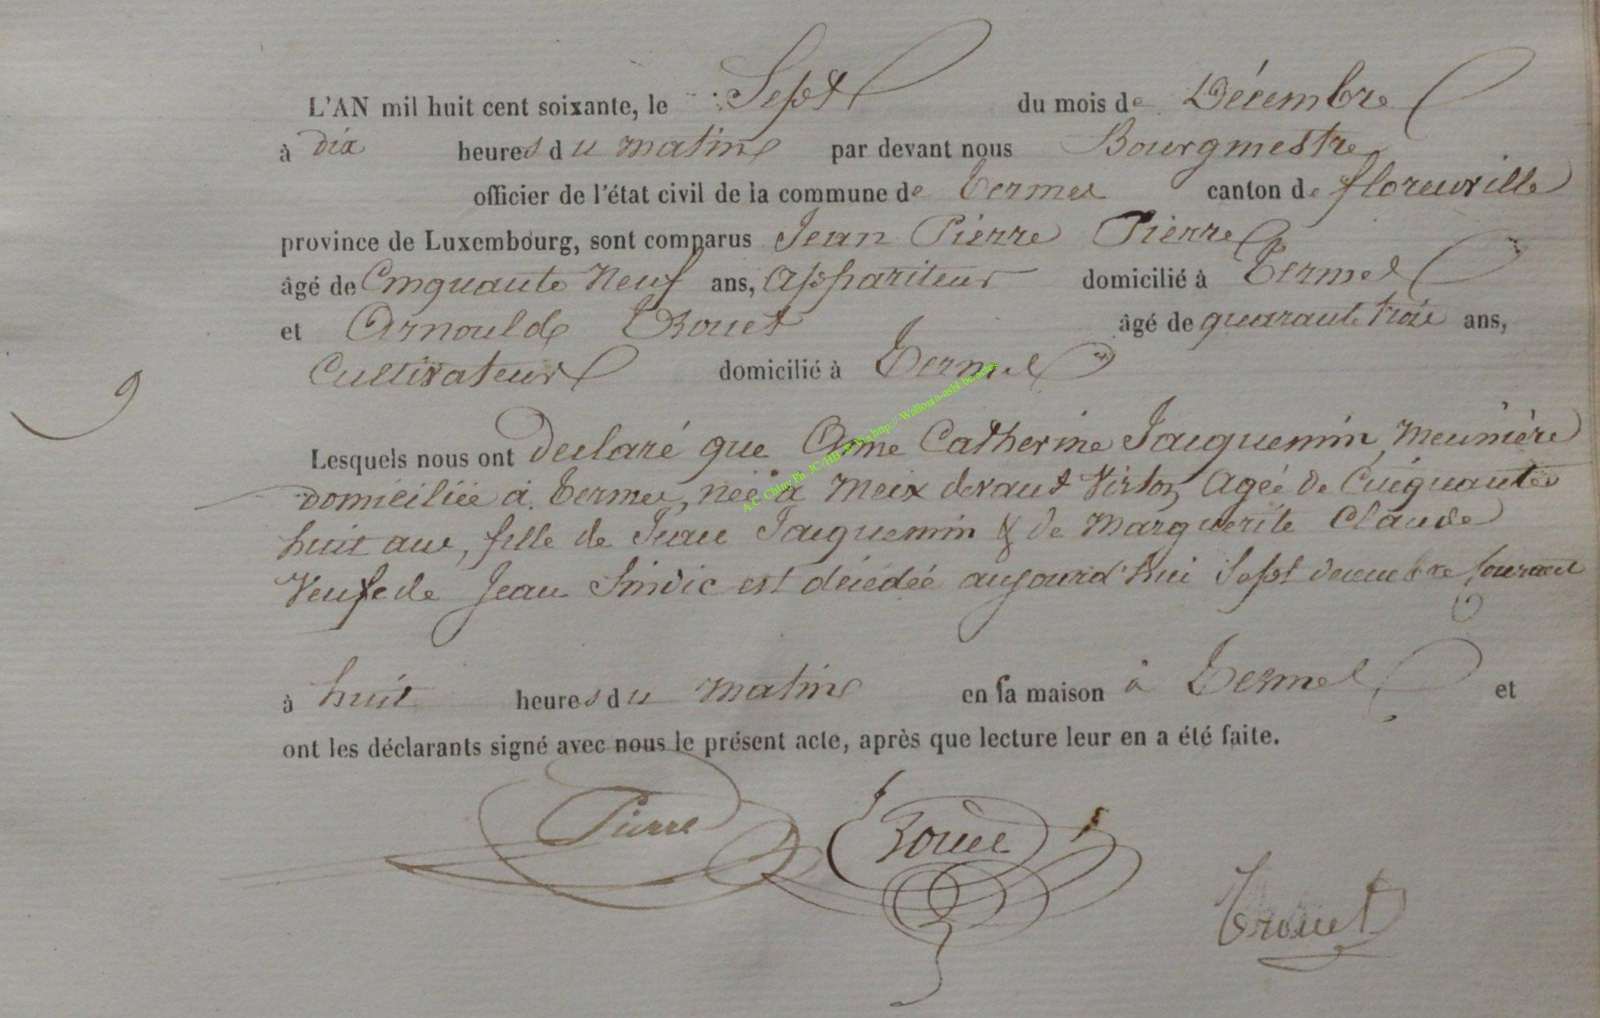 L'AN mil huit cent soixante, le Sept du mois de Décembre
à dix heures du matin par devant nous Bourgmestre
officier de l'état civil de la commune de Termes canton de florenville
province de Luxembourg, sont comparus Jean Pierre Pierre
âgé de Cinquante Neuf ans, Appariteur domicilié à Termes
et Arnould Rouet âgé de quarante trois ans,
Cultivateur domicilié à Termes
Lesquels nous ont déclaré que Anne Catherine Jacquemin, Meunière
domiciliée à Termes, née à Meix devant Virton, Agée de Cinquante
huit ans, fille de Jean Jacquemin & de Marguerite Claude
Veufe de Jean Sindic est décédée aujourd'hui Sept decembre courant
à huit heures du matin en sa maison à Termes et
ont les déclarants signé avec nous le présent acte, après que lecture leur en a été faite.
Pierre Rouet